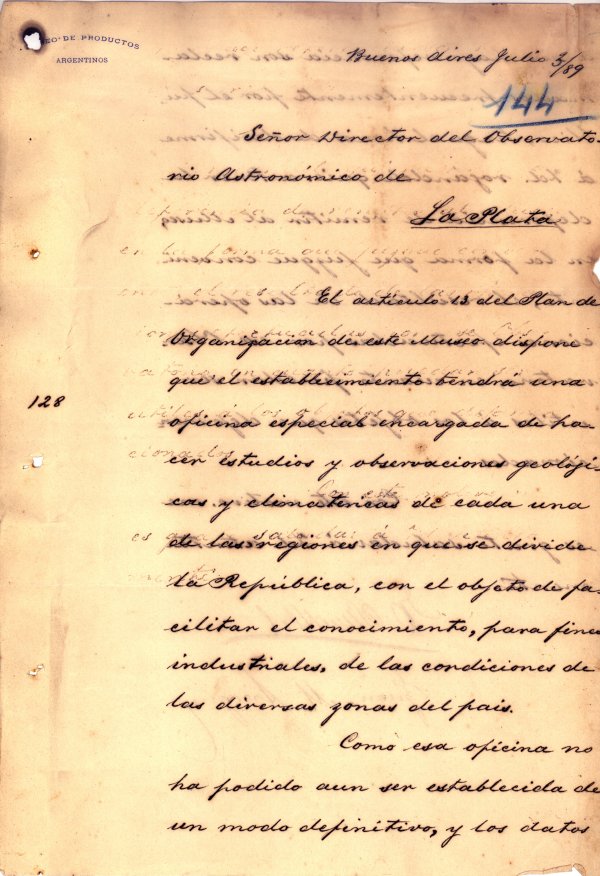 EO. DE PRODUCTOS
ARGENTINOS
Buenos Aires Julio 3/89
144
Señor Director del Observato-
rio Astronómico de
La Plata
El artículo 13 del Plan de
Organizacion de este Museo dispone
que el establecimiento tendrá una
oficina especial encargada de ha-
cer estudios y observaciones geológi-
cas y climatéricas de cada una
de las regiones en que se divide
la República, con el objeto de fa-
cilitar el conocimiento, para fines
industriales, de las condiciones de
las diversas zonas del pais.
Como esa oficina no
ha podido aun ser establecida de
un modo definitivo, y los datos
128